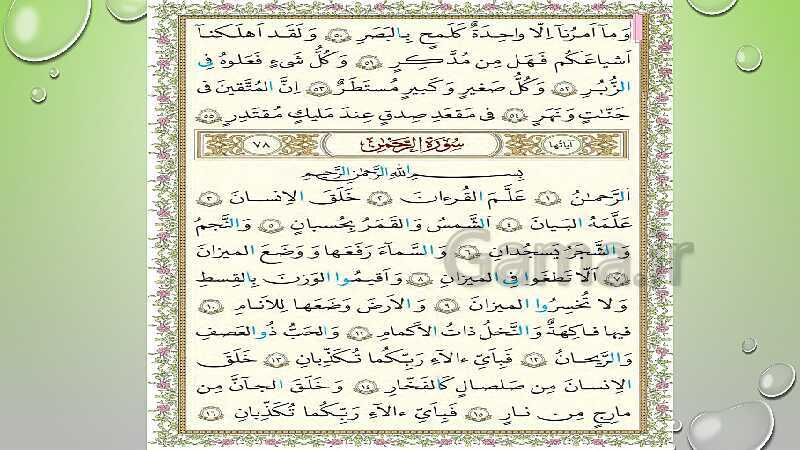 وَ ما اَمرُنآ اِلّا واحِدَةٌ كَلَمحٍ بِالبَصَرِ ۝٥٠ وَ لَقَد اَهلَكنآ
اَشياعَكُم فَهَل مِن مُدَّكِرٍ ۝٥١ وَ كُلُّ شَىءٍ فَعَلوهُ فِى
الزُّبُرِ ۝٥٢ وَ كُلُّ صَغيرٍ وَ كَبيرٍ مُستَطَرٌ ۝٥٣ اِنَّ المُتَّقينَ فى
جَنّاتٍ وَ نَهَرٍ ۝٥٤ فى مَقعَدِ صِدقٍ عِندَ مَليكٍ مُقتَدِرٍ ۝٥٥
آياتُها سورَةُ الرَّحمٰن ٧٨
بِسمِ اللّٰهِ الرَّحمٰنِ الرَّحيمِ
اَلرَّحمٰنُ ۝١ عَلَّمَ القُرءانَ ۝٢ خَلَقَ الاِنسانَ ۝٣
عَلَّمَهُ البَيانَ ۝٤ اَلشَّمسُ وَ القَمَرُ بِحُسبانٍ ۝٥ وَ النَّجمُ
وَ الشَّجَرُ يَسجُدانِ ۝٦ وَ السَّمآءَ رَفَعَها وَ وَضَعَ الميزانَ
۝٧ اَلّا تَطغَوا فِى الميزانِ ۝٨ وَ اَقيمُوا الوَزنَ بِالقِسطِ
وَ لا تُخسِرُوا الميزانَ ۝٩ وَ الاَرضَ وَضَعَها لِلاَنامِ ۝١٠
فيها فاكِهَةٌ وَ النَّخلُ ذاتُ الاَكمامِ ۝١١ وَ الحَبُّ ذُو العَصفِ
وَ الرَّيحانُ ۝١٢ فَبِاَىِّ ءالآءِ رَبِّكُما تُكَذِّبانِ ۝١٣ خَلَقَ
الاِنسانَ مِن صَلصالٍ كَالفَخّارِ ۝١٤ وَ خَلَقَ الجآنَّ مِن
مارِجٍ مِن نارٍ ۝١٥ فَبِاَىِّ ءالآءِ رَبِّكُما تُكَذِّبانِ ۝١٦
Gama.ir